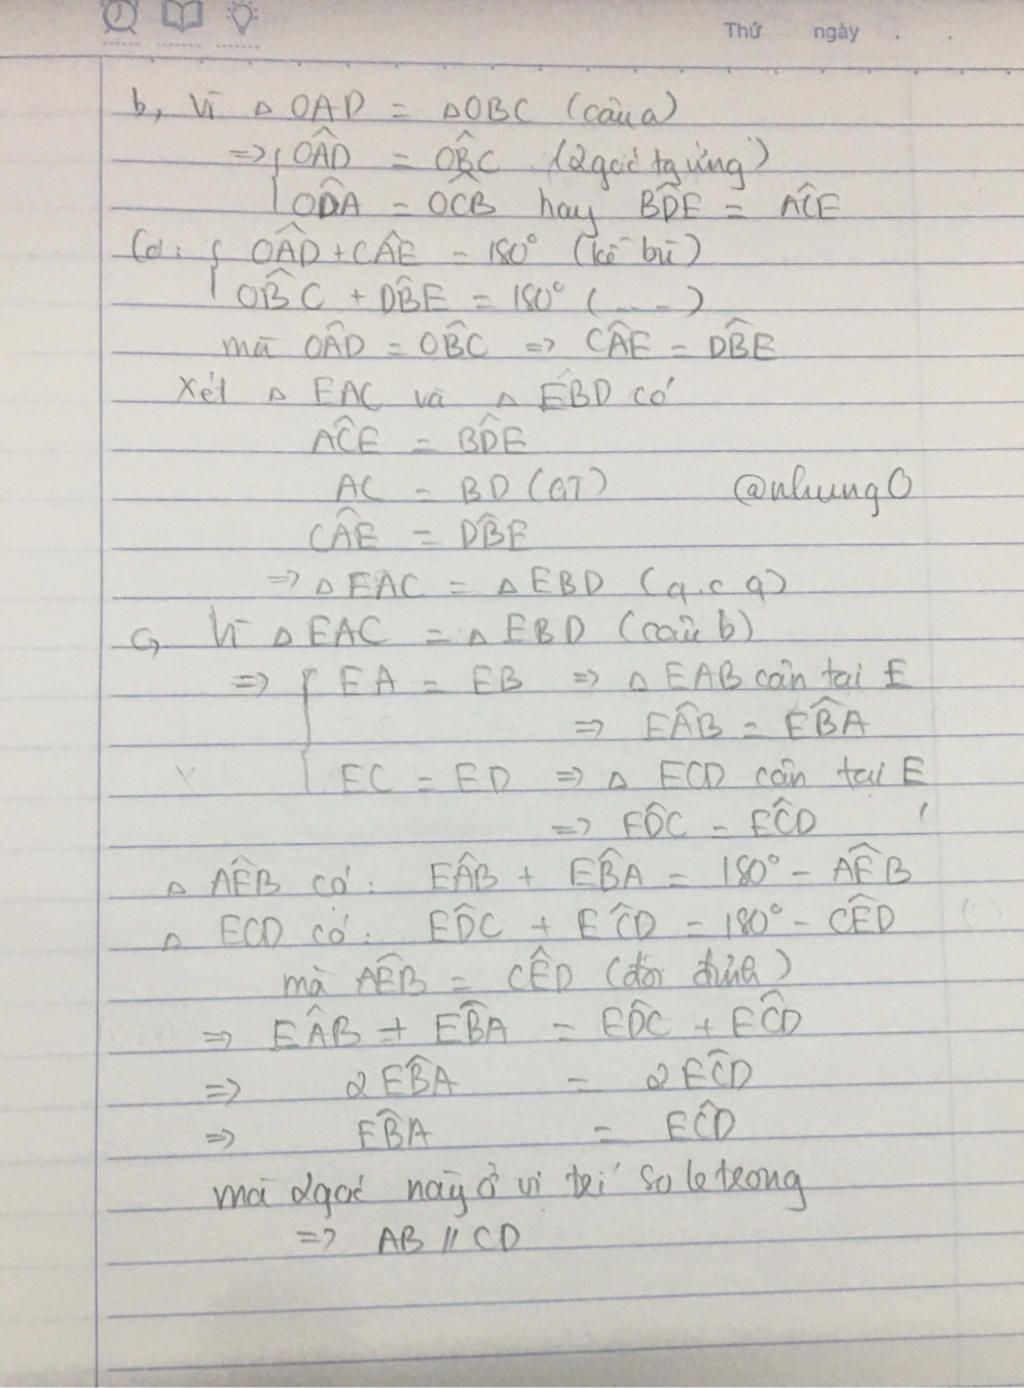 Thứ ngày . .
b, Vì △ OAD = △OBC (câu a)
=> { OÂD = OB̂C (2 góc tg ứng)
OD̂A = OĈB hay BD̂E = AĈE
Có: { OÂD + CÂE = 180° (kề bù)
OB̂C + DB̂E = 180° (- - -)
mà OÂD = OB̂C => CÂE = DB̂E
Xét △ EAC và △ EBD có
AĈE = BD̂E
AC = BD (GT) @nhungO
CÂE = DB̂E
=> △ EAC = △ EBD (g.c.g)
c, Vì △ EAC = △ EBD (câu b)
=> { EA = EB => △ EAB cân tại E
=> EÂB = EB̂A
EC = ED => △ ECD cân tại E
=> ED̂C = EĈD
△ AÊB có: EÂB + EB̂A = 180° - AÊB
△ ECD có: ED̂C + EĈD = 180° - CÊD
mà AÊB = CÊD (đối đỉnh)
=> EÂB + EB̂A = ED̂C + EĈD
=> 2EB̂A = 2EĈD
=> EB̂A = EĈD
mà 2 góc này ở vị trí so le trong
=> AB // CD